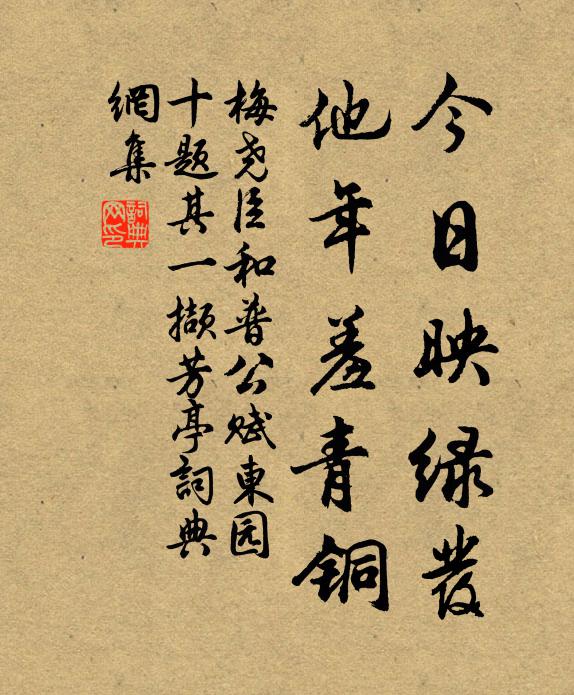 今日映绿发
他年羞青铜
梅尧臣和普公赋東园
十题其一撷芳亭詞典
網集
詞典網印